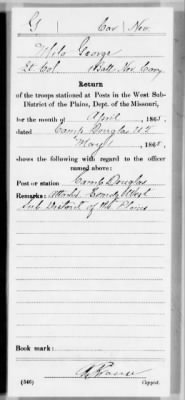 G | Cav | Nev.
Milo George
Lt Col., 1 Batt. Nev. Cavy
Return
of the troops stationed at Posts in the West Sub-
District of the Plains, Dept. of the Missouri,
for the month of April, 1865,
dated Camp Douglas U.T.
May 1, 1865,
shows the following with regard to the officer
named above:
Post or station Camp Douglas
Remarks: Comdg West
Sub District of the Plains
Book mark:
(546) Copyist.